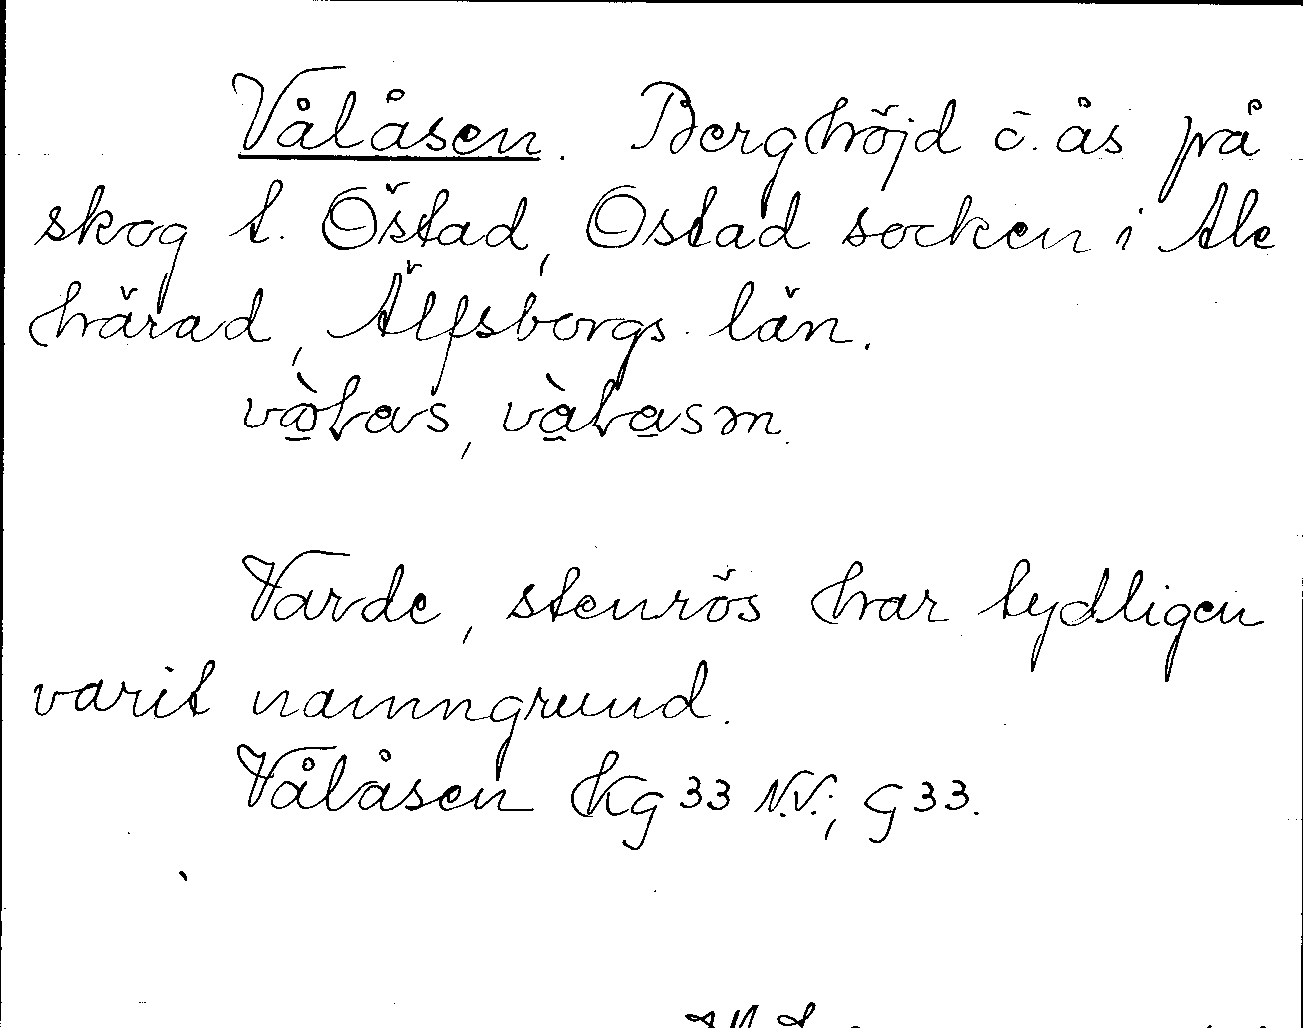 Vålåsen. Berghöjd o. ås på
skog t. Östad, Östad socken i Ale
härad, Älfsborgs län.
Varde, stenrös har tydligen
varit namngrund.
Vålåsen Kg 33 N.V.; G 33.